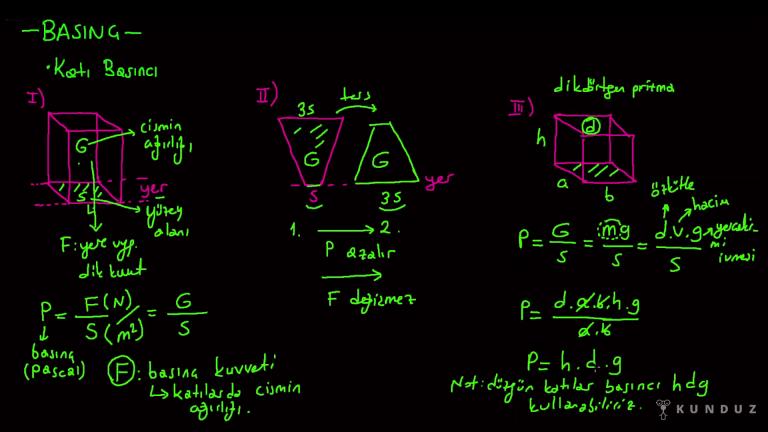 — BASINÇ —
• Katı Basıncı
I)
G
cismin
ağırlığı
yer
S
yüzey
alanı
F: yere uyg.
dik kuvvet
P = F(N) / S(m²) = G / S
basınç
(pascal)
F : basınç kuvveti
↳ katılarda cismin
ağırlığı.
II)
ters
3S
G
G
yer
S
3S
1. → 2.
P azalır
F değişmez
dikdörtgen prizma
III)
h
d
a
b
özkütle
hacim
P = G / S = m.g / S = d.v.g / S
yerçeki-
mi
ivmesi
P = d.a.b.h.g / a.b
P = h.d.g
Not: düzgün katılar basıncı hdg
kullanabiliriz.
KUNDUZ